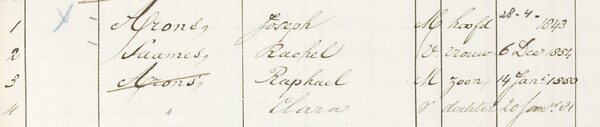 1 Arons, Joseph M hoofd 28-4- 1843
2 Saames, Rachel V. vrouw 6 Dec 1854
3 Arons, Raphael M zoon 14 Jan: 1880
4 " Clara V dochter 20 Jan: 81